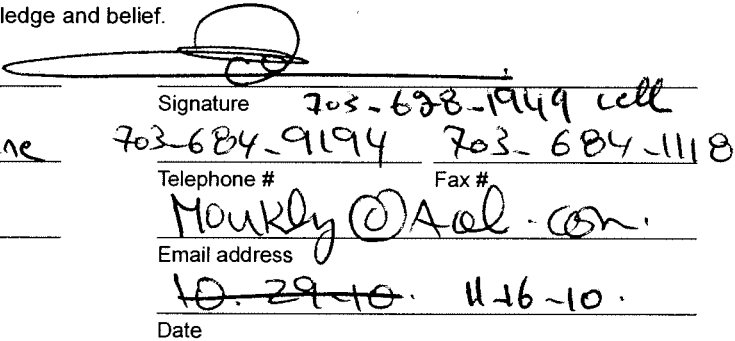 ledge and belief.
Signature 703-628-1949 cell
ne 703-684-9194 703-684-1118
Telephone # Fax #
Moukly@Aol.com.
Email address
10.29-10. 11-16-10.
Date